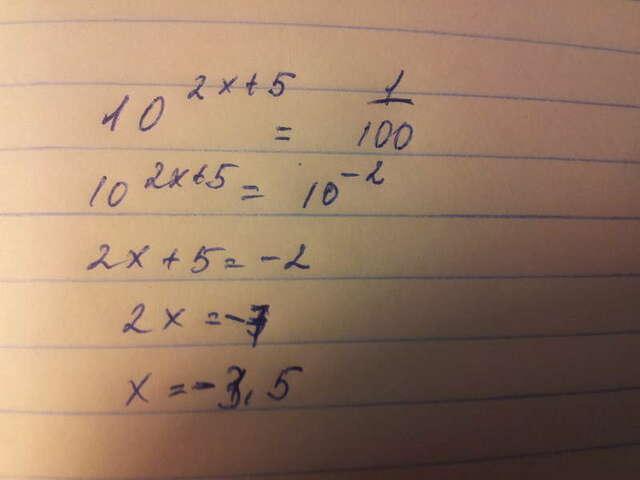 10^{2x+5} = \frac{1}{100}
10^{2x+5} = 10^{-2}
2x + 5 = -2
2x = -7
x = -3,5